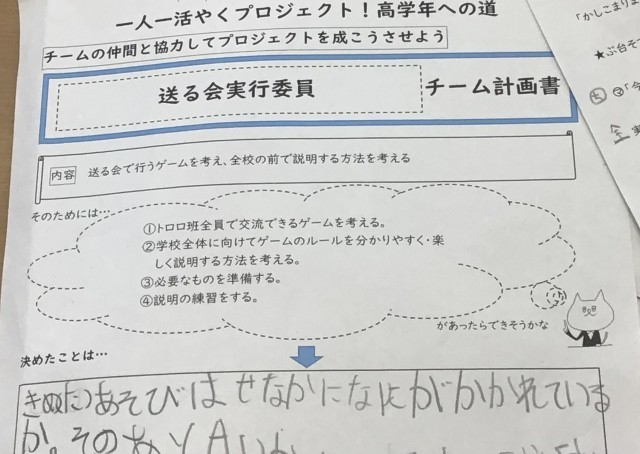 一人一活やくプロジェクト！高学年への道
チームの仲間と協力してプロジェクトを成こうさせよう
送る会実行委員 チーム計画書
内容 送る会で行うゲームを考え、全校の前で説明する方法を考える
そのためには…
①トロロ班全員で交流できるゲームを考える。
②学校全体に向けてゲームのルールを分かりやすく・楽
しく説明する方法を考える。
③必要なものを準備する。
④説明の練習をする。
があったらできそうかな
決めたことは…
あそびは せなかになにがかかれている
か。その
「かしこまりま
★ぶ台そ